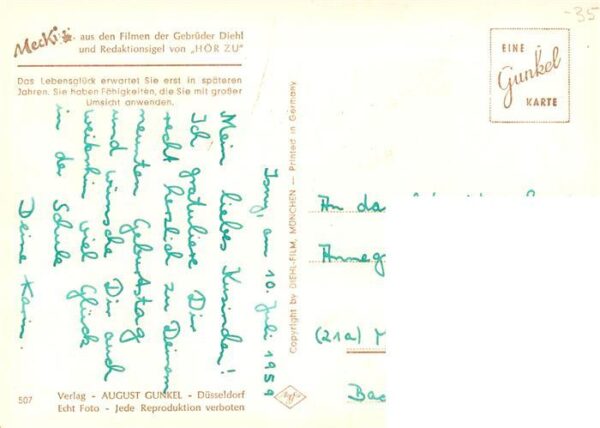 Mecki - aus den Filmen der Gebrüder Diehl
und Redaktionsigel von „HÖR ZU"
Das Lebensglück erwartet Sie erst in späteren
Jahren. Sie haben Fähigkeiten, die Sie mit großer
Umsicht anwenden.
-35
EINE
Gunkel
KARTE
am 10. Juli 1959
Mein liebes Kusinden!
Ich gratuliere Dir
recht herzlich zu Deinem
neunten Geburtstag
und wünsche Dir auch
weiterhin viel Glück
in der Schule
Deine Karin.
Copyright by DIEHL-FILM, MÜNCHEN — Printed in Germany
An da
Anneg
(21a)
Bad
507
Verlag - AUGUST GUNKEL - Düsseldorf
Echt Foto - Jede Reproduktion verboten
Agfa